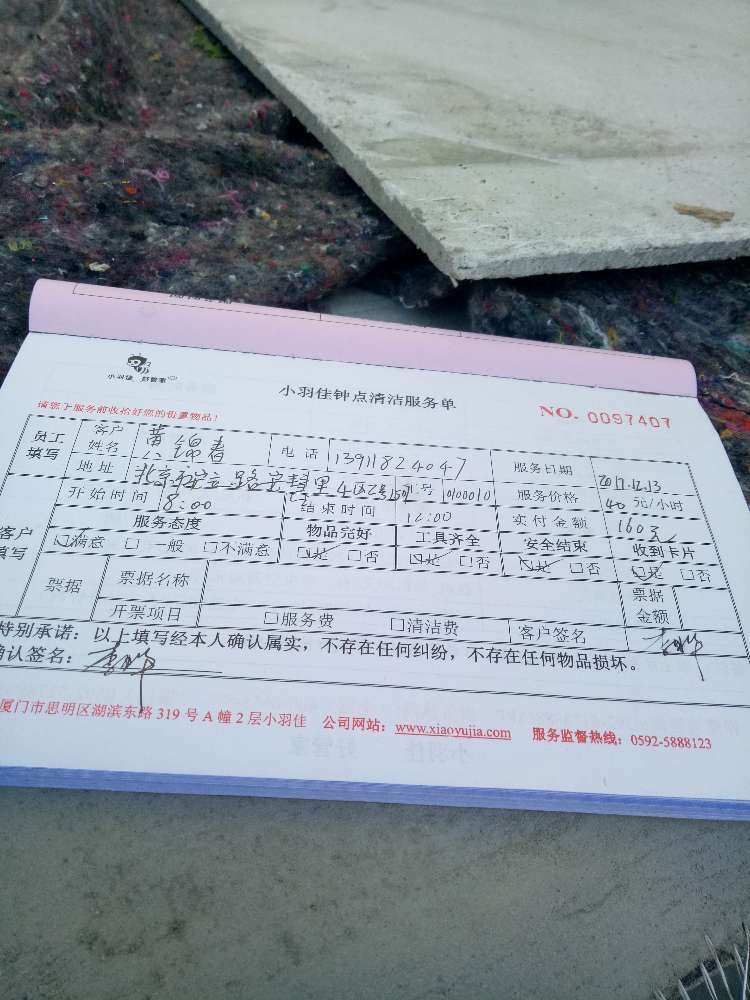 小羽佳 好管家
小羽佳钟点清洁服务单
NO. 0097407
请您于服务前收拾好您的贵重物品!
员工填写 客户姓名 黄锦春 电话 13911824047 服务日期 2017.12.13
地址 北京 路 里4区2号 0100010 服务价格 40元/小时
开始时间 8:00 结束时间 12:00 实付金额 160元
客户填写 服务态度 物品完好 工具齐全 安全结束 收到卡片
☑满意 □一般 □不满意 ☑是 □否 ☑是 □否 ☑是 □否 ☑是 □否
票据 票据名称 票据金额
开票项目 □服务费 □清洁费 客户签名
特别承诺:以上填写经本人确认属实,不存在任何纠纷,不存在任何物品损坏。
确认签名:
厦门市思明区湖滨东路319号A幢2层小羽佳 公司网站:www.xiaoyujia.com 服务监督热线:0592-5888123